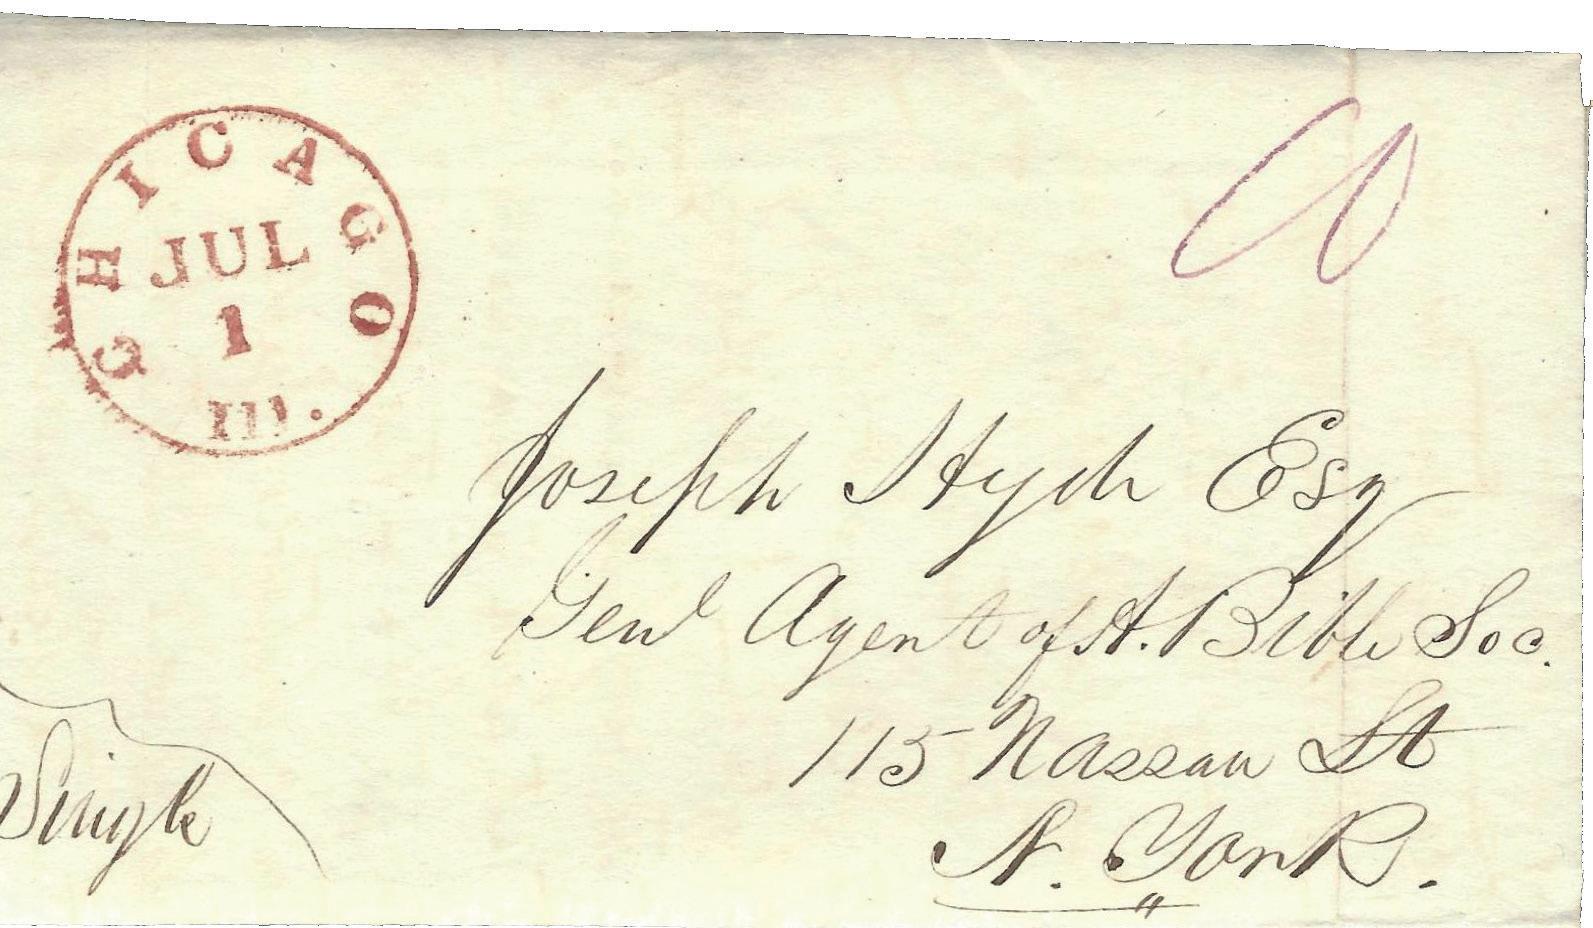 CHICAGO
JUL
1
Ill.
Joseph Hyde Esq
Genl Agent of A. Bible Soc.
115 Nassau St
N. York.
Single